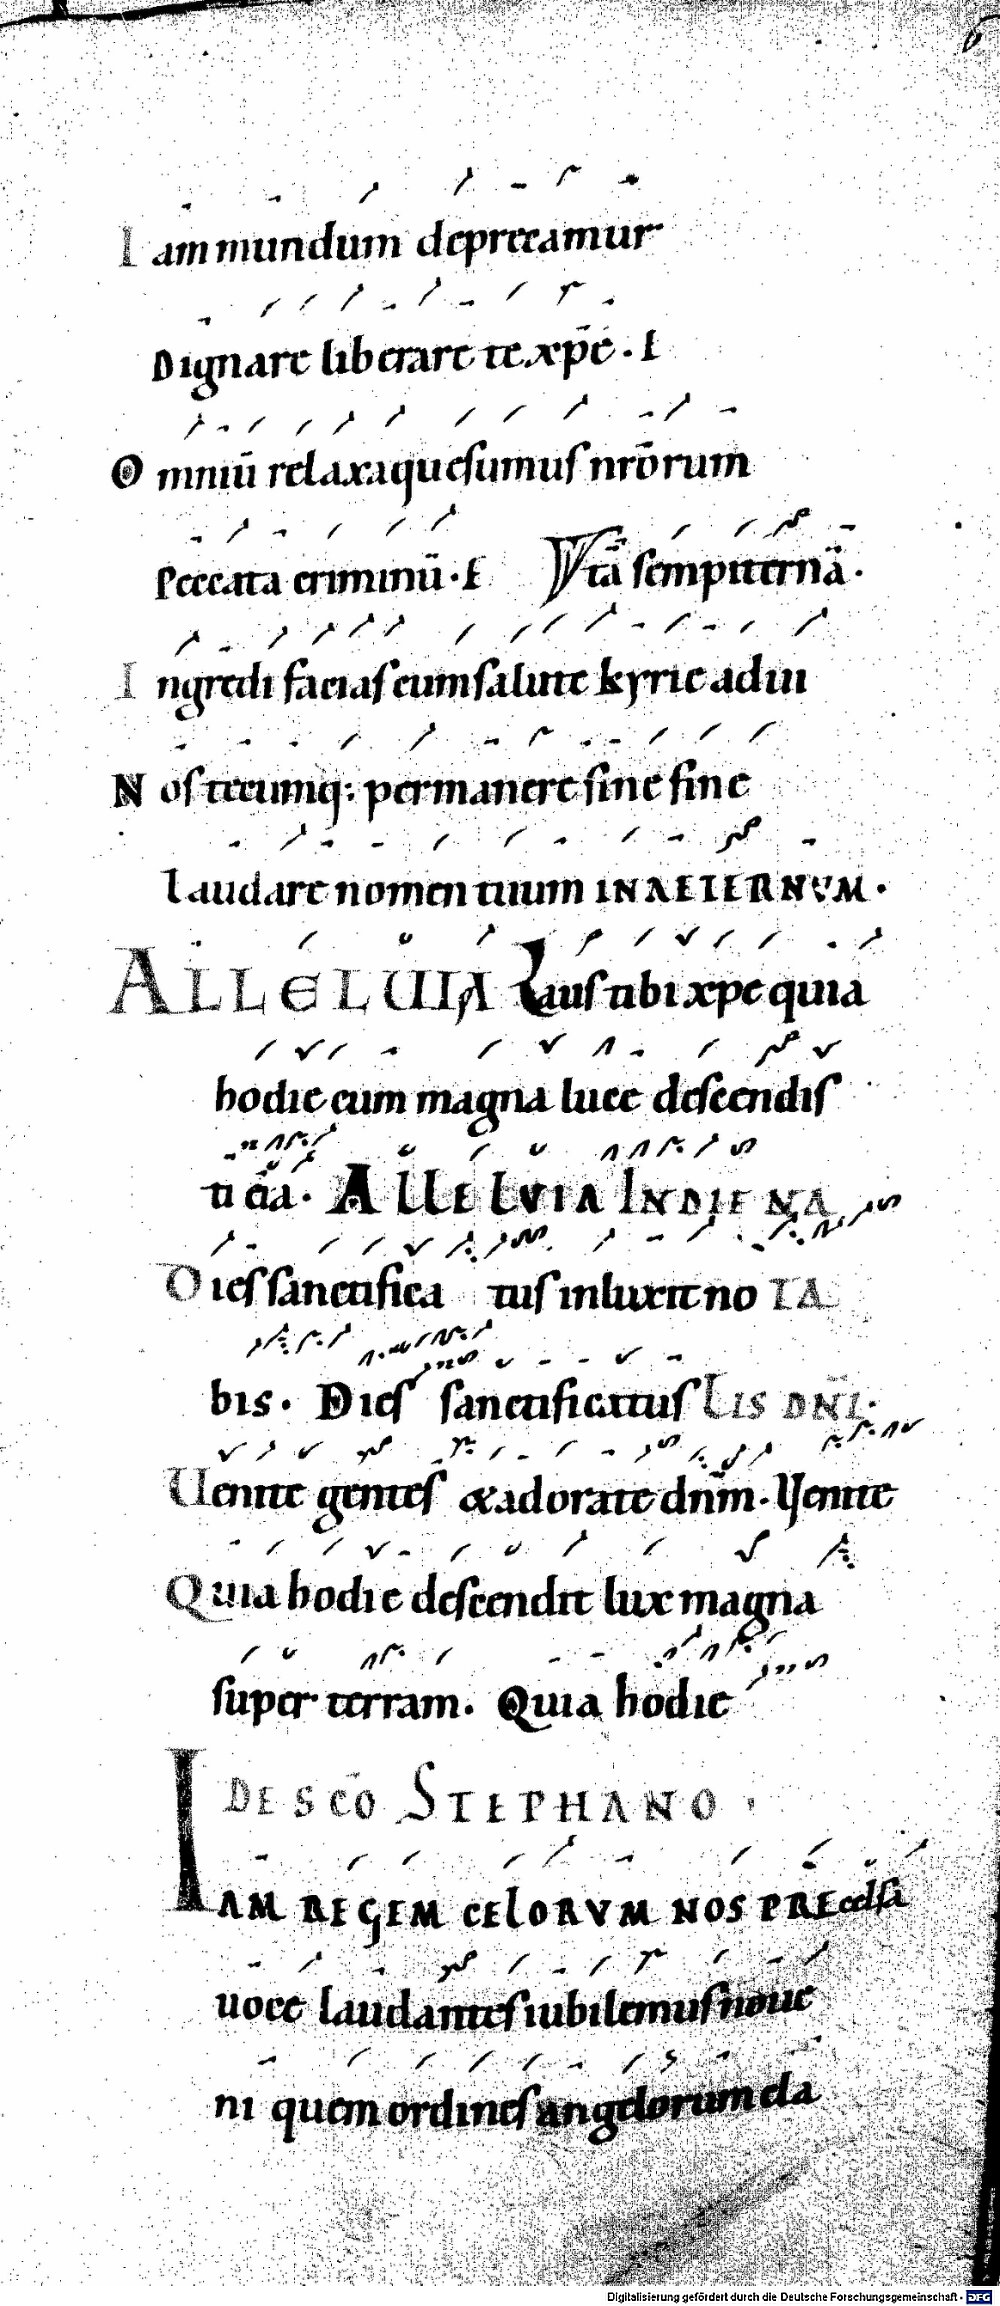 6
I am mundum deprecamur
Dignare liberare te xp̄e · E
O mniū relaxa quesumus nr̄orum
Peccata criminū · E Vitā sempiternā ·
I ngredi facias cum salute kyrie adiu
N os tecumq: permanere sine fine
laudare nomen tuum IN AETERNVM ·
ALLELUIA Laus tibi xpe quia
hodie cum magna luce descendis
ti cia · ALLELVIA IN DIE NA
Dies sanctifica tus inluxit no TA
bis · Dies sanctificatus LIS DN̄I ·
Uenite gentes & adorate dnm̄ · Uenite
Quia hodie descendit lux magna
super terram · Quia hodie
DE SC̄O STEPHANO ·
IAM REGEM CELORVM NOS PRE celsa
uoce laudantes iubilemus noue
ni quem ordines angelorum cla
Digitalisierung gefördert durch die Deutsche Forschungsgemeinschaft - DFG